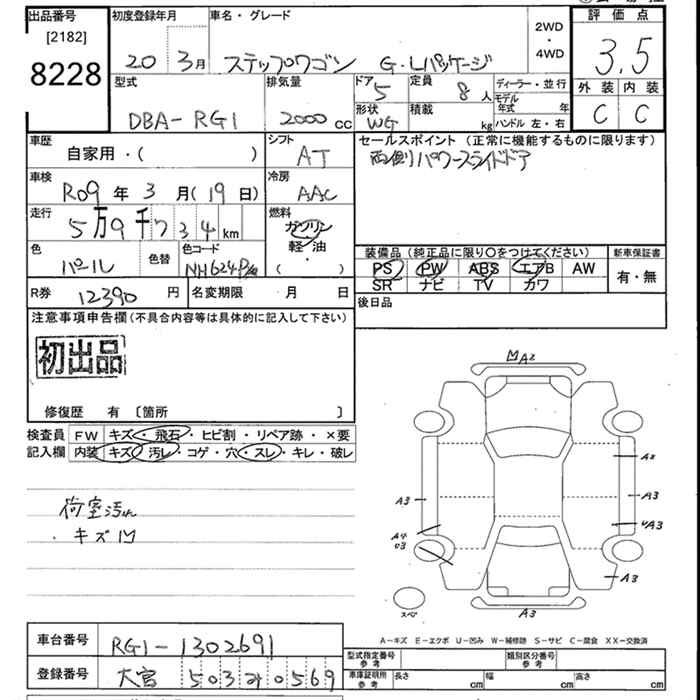 出品番号 初度登録年月 車名・グレード 評価点
[2182]
8228
20 3月 ステップワゴン G・Lパッケージ
2WD
・
4WD
3.5
型式 排気量 ドア 定員 ディーラー・並行 外装 内装
DBA-RG1 2000cc 5 8人 モデル年式 年 C C
形状 積載 ハンドル 左・右
WG kg
車歴 シフト セールスポイント(正常に機能するものに限ります)
自家用・( ) AT 両側パワースライドドア
車検 冷房
R09年3月(19日) AAC
走行 燃料
5万9千734km ガソリン
軽・油
・
( )
色 色替 色コード 装備品(純正品に限り○をつけてください) 新車保証書
パール PS PW ABS エアB AW 有・無
SR ナビ TV カワ
R券 12390円 名変期限 月 日 後日品
注意事項申告欄(不具合内容等は具体的に記入して下さい)
初出品
修復歴 有 〔箇所 〕
検査員 FW キズ・飛石・ヒビ割・リペア跡・×要
記入欄 内装 キズ・汚レ・コゲ・穴・スレ・キレ・破レ
荷室汚れ
・キズM
A2
A2
A3
A3
A3
A3
A3
スペア
A-キズ E-エクボ U-凹み W-補修跡 S-サビ C-腐食 XX-交換済
車台番号 RG1-1302691
型式指定番号 参考 類別区分番号 参考
登録番号 大宮 503 0569
車庫証明所 参考 長さ cm 幅 cm 高さ cm